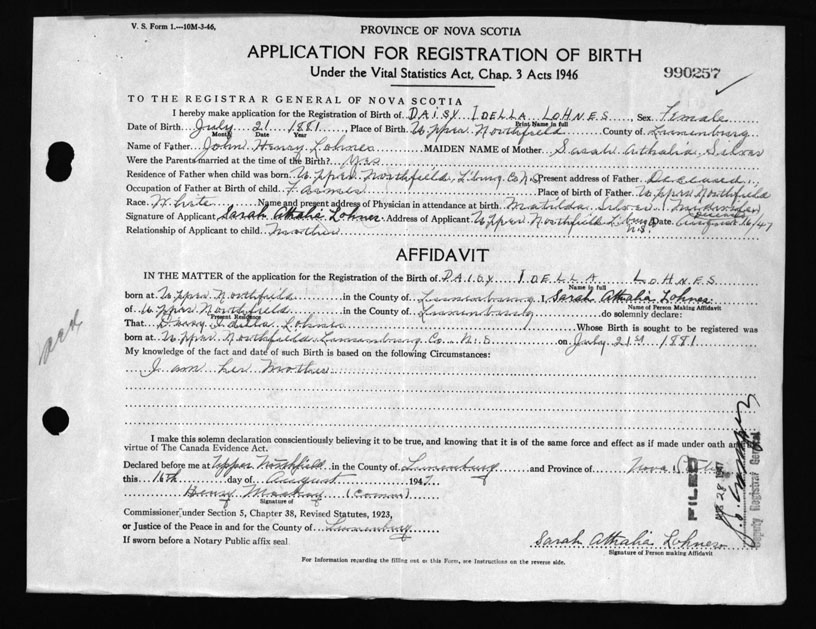 V. S. Form 1.---10M-3-46,
PROVINCE OF NOVA SCOTIA
APPLICATION FOR REGISTRATION OF BIRTH
Under the Vital Statistics Act, Chap. 3 Acts 1946
990257
TO THE REGISTRAR GENERAL OF NOVA SCOTIA
I hereby make application for the Registration of Birth of DAISY IDELLA LOHNES, Sex Female
Print Name in full
Date of Birth July 21 1881, Place of Birth Upper Northfield County of Lunenburg
Month Date Year
Name of Father John Henry Lohnes MAIDEN NAME of Mother Sarah Athalia Silver
Were the Parents married at the time of the Birth? Yes
Residence of Father when child was born Upper Northfield, L'burg Co N.S Present address of Father Deceased
Occupation of Father at Birth of child Farmer Place of birth of Father Upper Northfield
Race White Name and present address of Physician in attendance at birth Matilda Silver (Midwife) Deceased
Signature of Applicant Sarah Athalia Lohnes Address of Applicant Upper Northfield L'burg N.S Date August 16/47
Relationship of Applicant to child Mother
AFFIDAVIT
IN THE MATTER of the application for the Registration of the Birth of DAISY IDELLA LOHNES
Name in full
born at Upper Northfield in the County of Lunenburg I, Sarah Athalia Lohnes
Name of Person Making Affidavit
of Upper Northfield in the County of Lunenburg do solemnly declare:
Present Residence
That Daisy Idella Lohnes Whose Birth is sought to be registered was
born at Upper Northfield Lunenburg Co. N.S on July 21st 1881
My knowledge of the fact and date of such Birth is based on the following Circumstances:
I am her Mother
I make this solemn declaration conscientiously believing it to be true, and knowing that it is of the same force and effect as if made under oath and by
virtue of The Canada Evidence Act.
Declared before me at Upper Northfield in the County of Lunenburg and Province of Nova Scotia
this 16th day of August 1947
Henry (Comm)
Signature of
Commissioner under Section 5, Chapter 38, Revised Statutes, 1923,
or Justice of the Peace in and for the County of Lunenburg
If sworn before a Notary Public affix seal
Sarah Athalia Lohnes
Signature of Person making Affidavit
For Information regarding the filling out of this Form, see Instructions on the reverse side.
FILED
28 1947
Deputy Registrar General